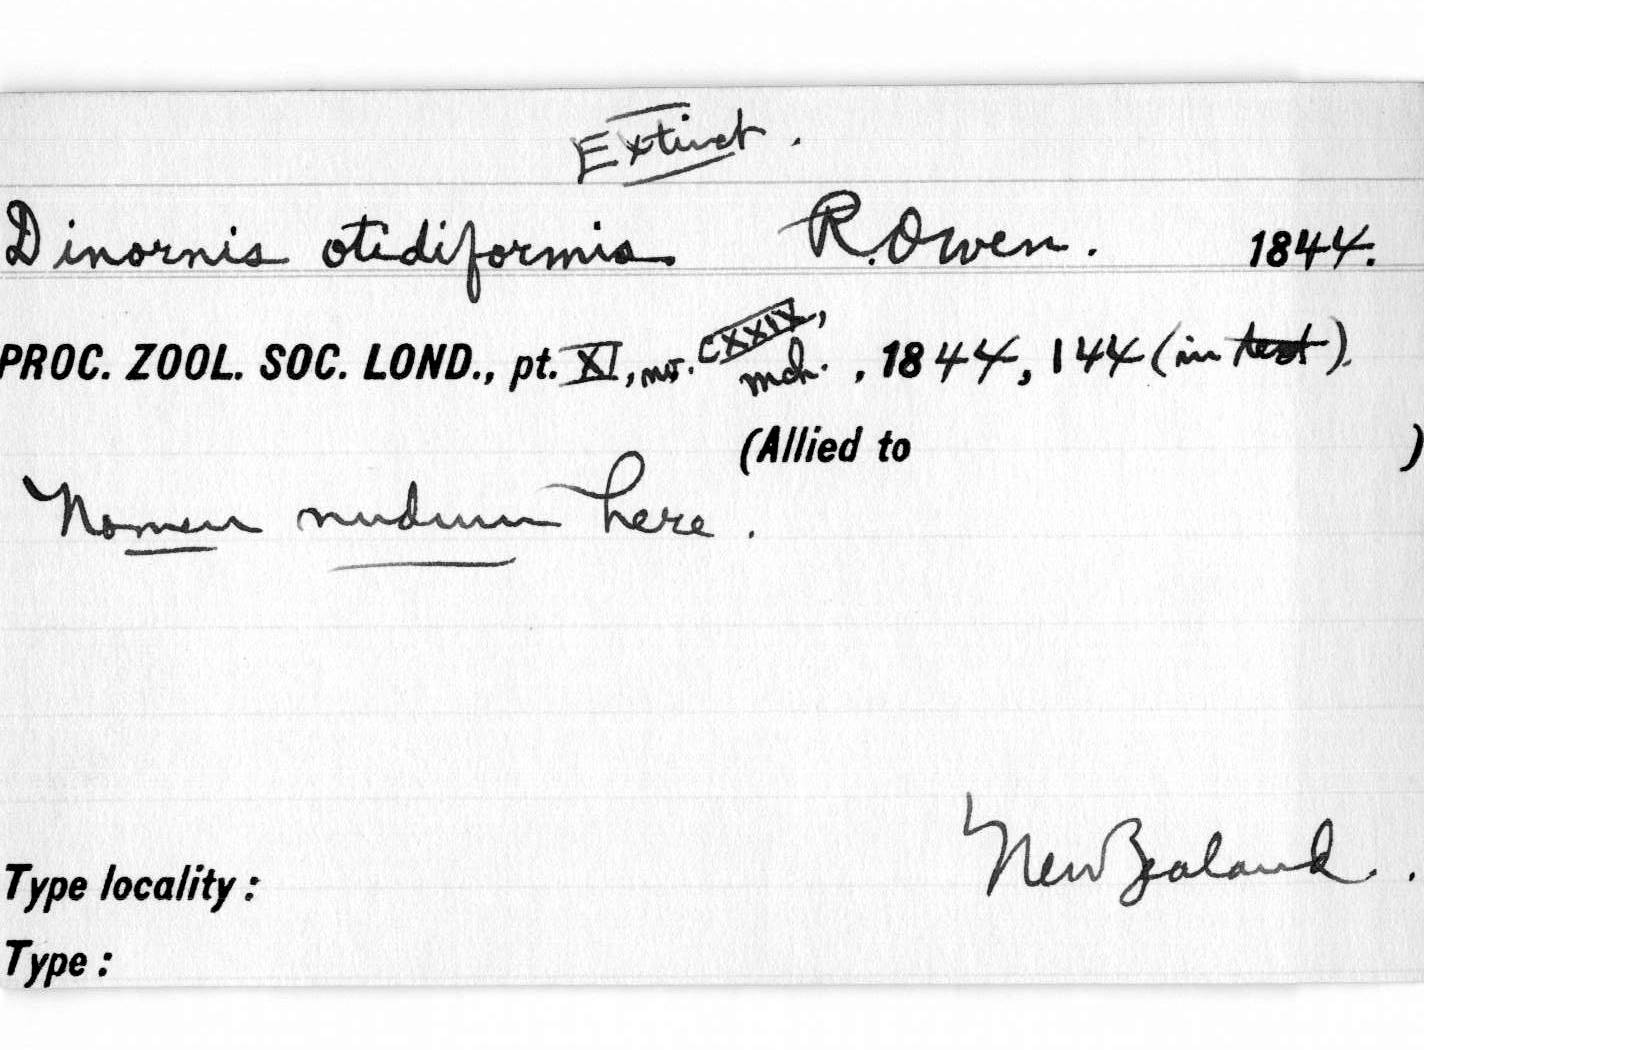 Extinct.
Dinornis otidiformis R. Owen. 1844.
PROC. ZOOL. SOC. LOND., pt. XI, no. CXXIX, mch. , 1844, 144 (in text).
(Allied to )
Nomen nudum here.
New Zealand.
Type locality :
Type :